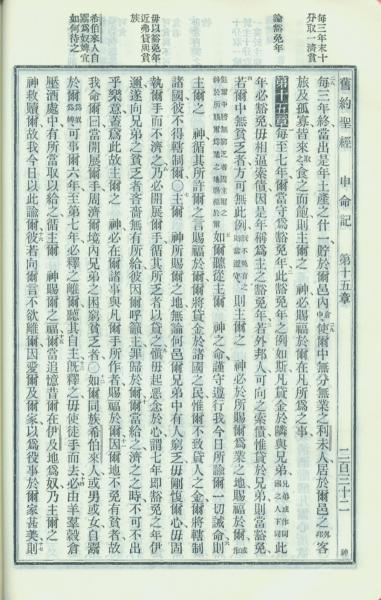 每三年末十
分取一濟貧
論豁免年
毋以豁免年
近弗貸與貧
族
希伯來人自
鬻為奴婢宜
如何待之
舊約聖經 申命記 第十五章 二百三十二
每三年終當出是年土產之什一貯於爾邑內使爾中無分無業之利未人居於爾邑之客
旅及孤寡皆來取食之而飽則主爾之 神必賜福於爾在凡所為之事
第十五章 每至七年爾當守為豁免年此豁免年之例如斯凡貸金於鄰與兄弟 此
年必豁免毋相逼索償因是年稱為主之豁免年若外邦人可向之索償惟貸於兄弟則當豁免
若爾中無貧乏者方可無此例 則主爾之 神必於所賜爾為業之地賜福於爾
如爾聽從主爾 神之命謹守遵行我今日所諭爾一切誡命則
主爾之 神循其所許爾之言賜福於爾爾將貸金於諸國之民惟爾不致貸人之金爾將轄制
諸國彼不得轄制爾○主爾 神所賜爾之地無論何邑爾兄弟中有人窮乏毋剛愎爾心毋固
執爾手而不濟之乃必開展爾手循其所乏者以貸之慎毋起惡念於心謂七年即豁免之年伊
邇遂向兄弟之貧乏者吝嗇無有所給彼因爾呼籲主罪歸於爾爾當給之濟之之時不可不出
乎樂意蓋為此故主爾之 神必在爾諸事與凡爾手所作者賜福於爾因爾地不免有貧者故
我命爾曰當開展爾手周濟爾境內兄弟之困窮貧乏者○如爾同族希伯來人或男或女自鬻
於爾為 可事爾六年至第七年必釋之離爾聽其自主既釋之毋使徒手而去必由羊羣穀倉
壓酒處中有所當取以給之循主爾 神賜爾之福爾當追憶昔爾在伊及地為奴乃主爾之
神救贖爾故我今日以此諭爾彼若向爾言不欲離爾因愛爾及爾家以為役事於爾家甚美則